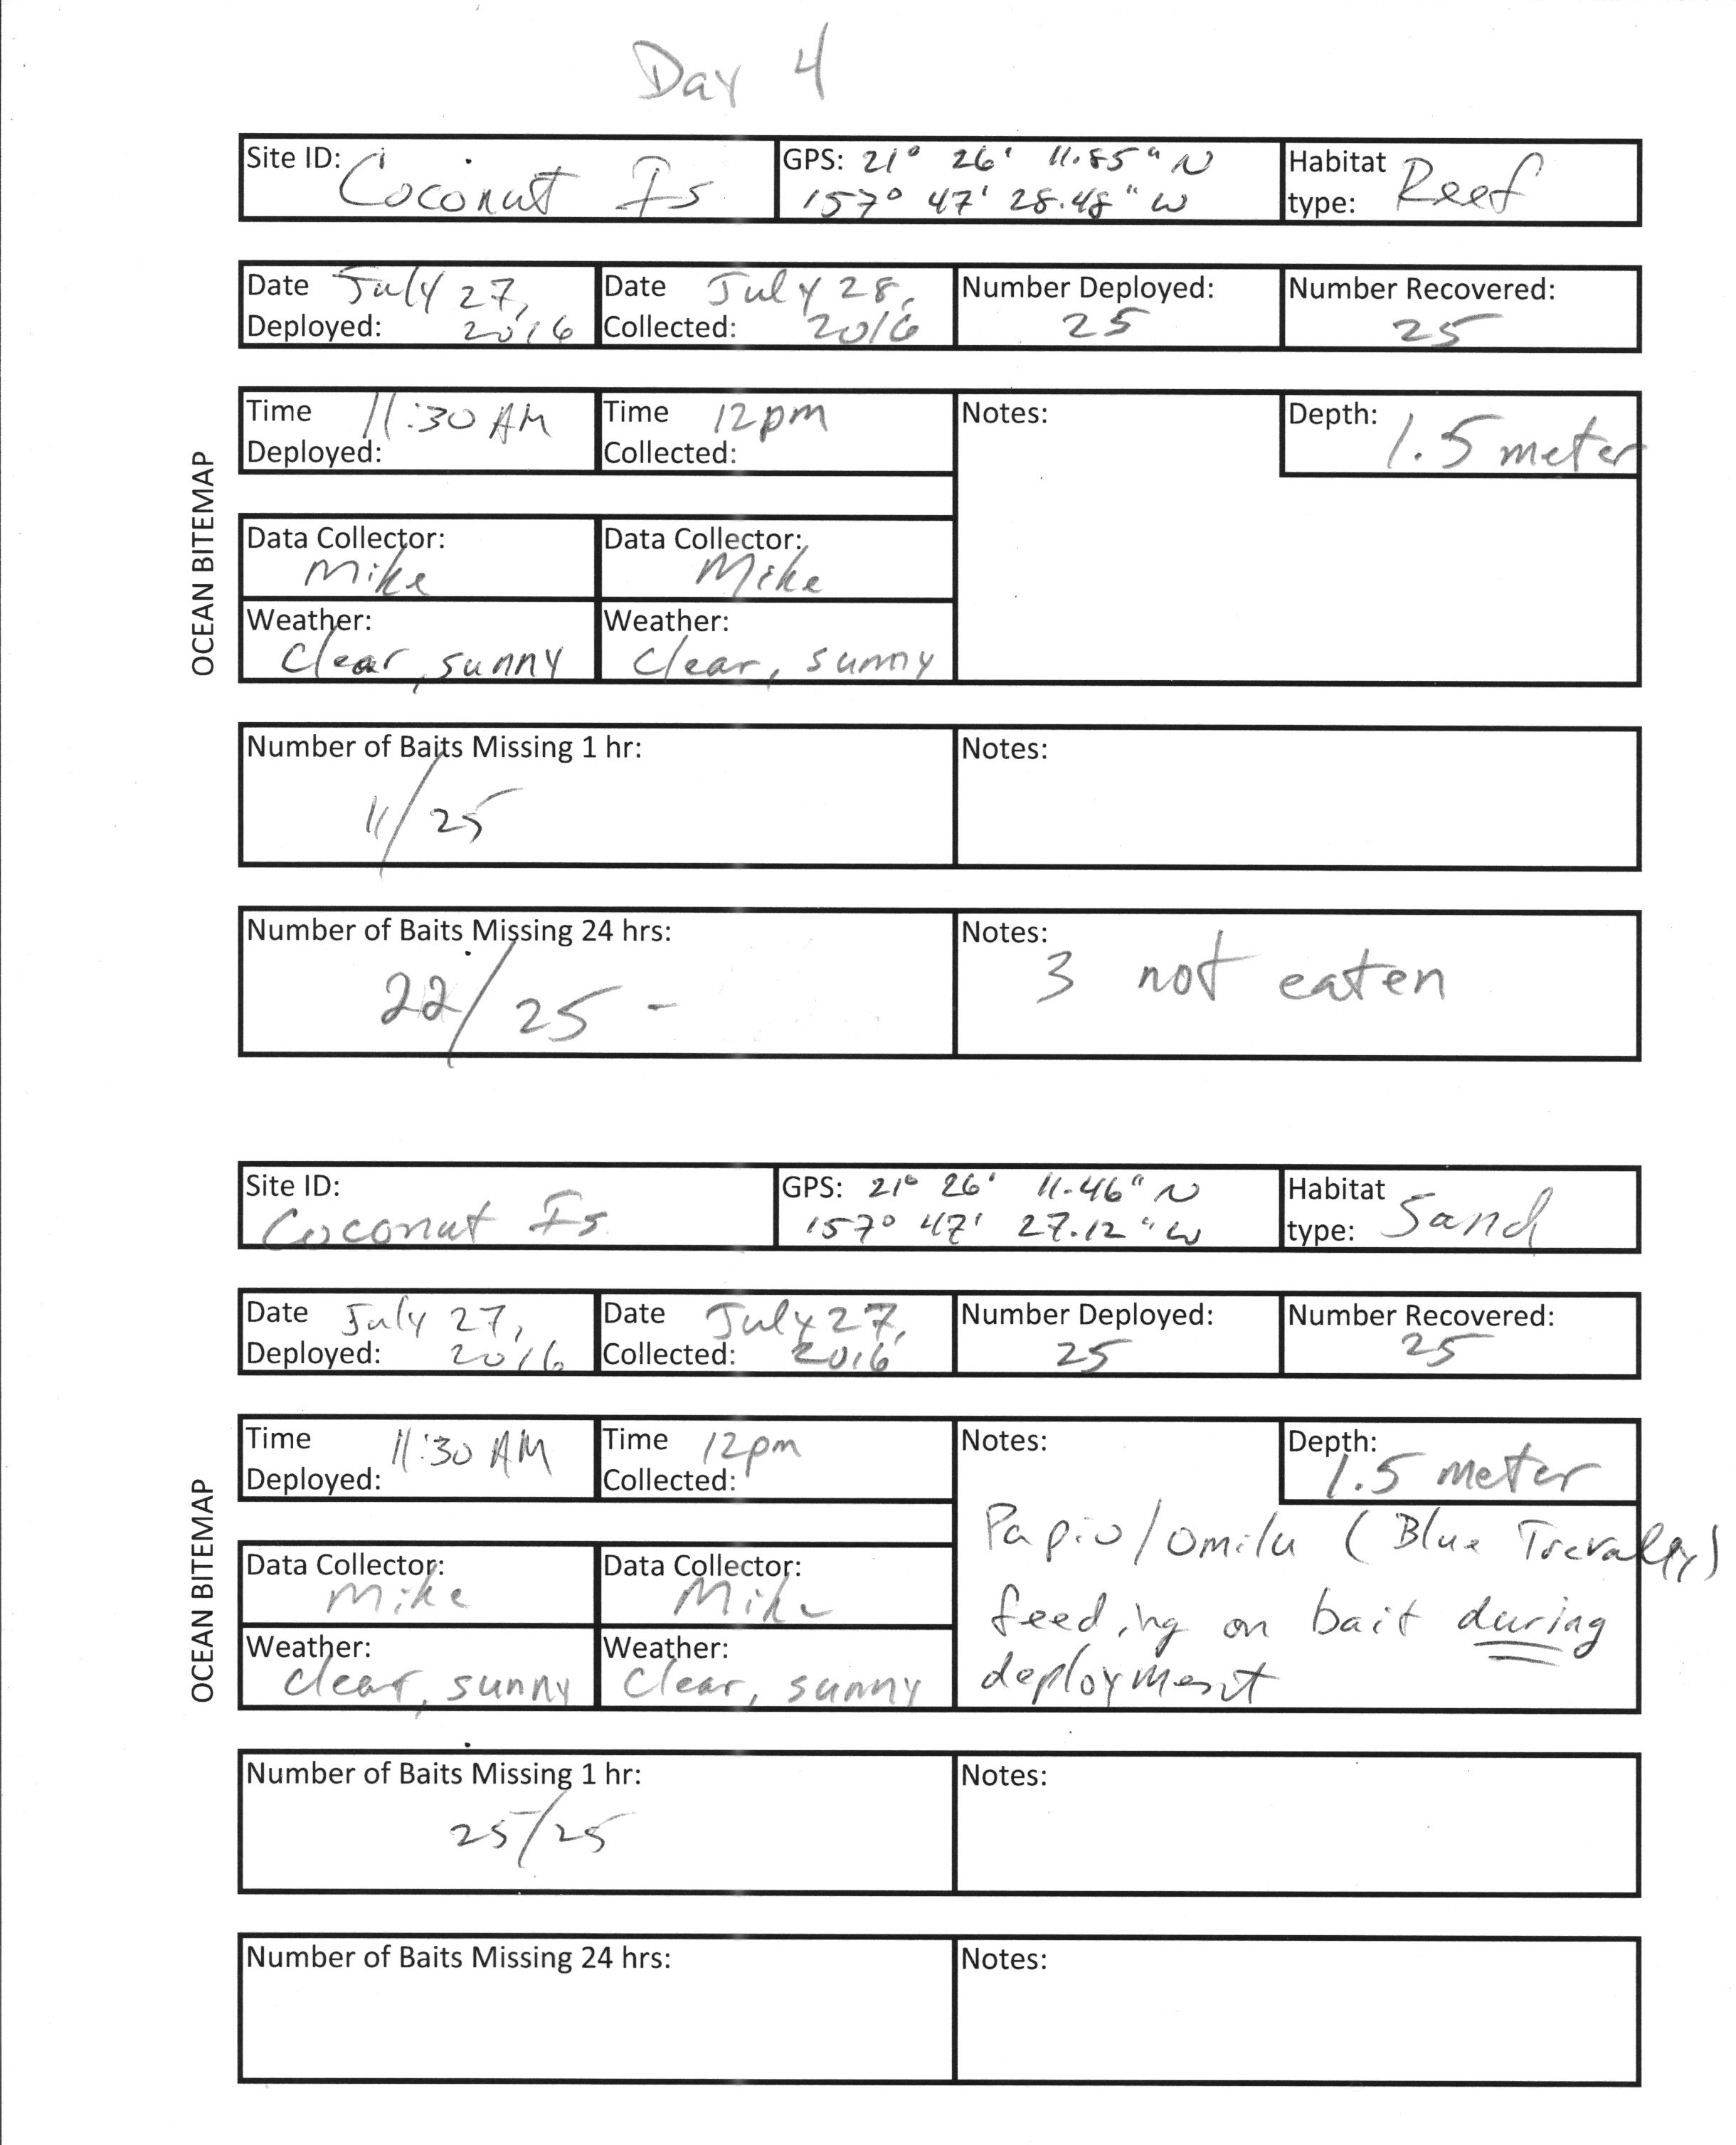 Day 4
Site ID: Coconut Is
GPS: 21° 26' 11.85" N
157° 47' 28.48" W
Habitat type: Reef
Date Deployed: July 27, 2016
Date Collected: July 28, 2016
Number Deployed: 25
Number Recovered: 25
Time Deployed: 11:30 AM
Time Collected: 12pm
Notes:
Depth: 1.5 meter
OCEAN BITEMAP
Data Collector: Mike
Data Collector: Mike
Weather: Clear, sunny
Weather: Clear, sunny
Number of Baits Missing 1 hr: 11/25
Notes:
Number of Baits Missing 24 hrs: 22/25 -
Notes: 3 not eaten
Site ID: Coconut Is
GPS: 21° 26' 11.46" N
157° 47' 27.12" W
Habitat type: Sand
Date Deployed: July 27, 2016
Date Collected: July 27, 2016
Number Deployed: 25
Number Recovered: 25
Time Deployed: 11:30 AM
Time Collected: 12pm
Notes:
Depth: 1.5 meter
Papio/omilu (Blue Trevally)
feeding on bait during
deployment
OCEAN BITEMAP
Data Collector: Mike
Data Collector: Mike
Weather: clear, sunny
Weather: Clear, sunny
Number of Baits Missing 1 hr: 25/25
Notes:
Number of Baits Missing 24 hrs:
Notes: